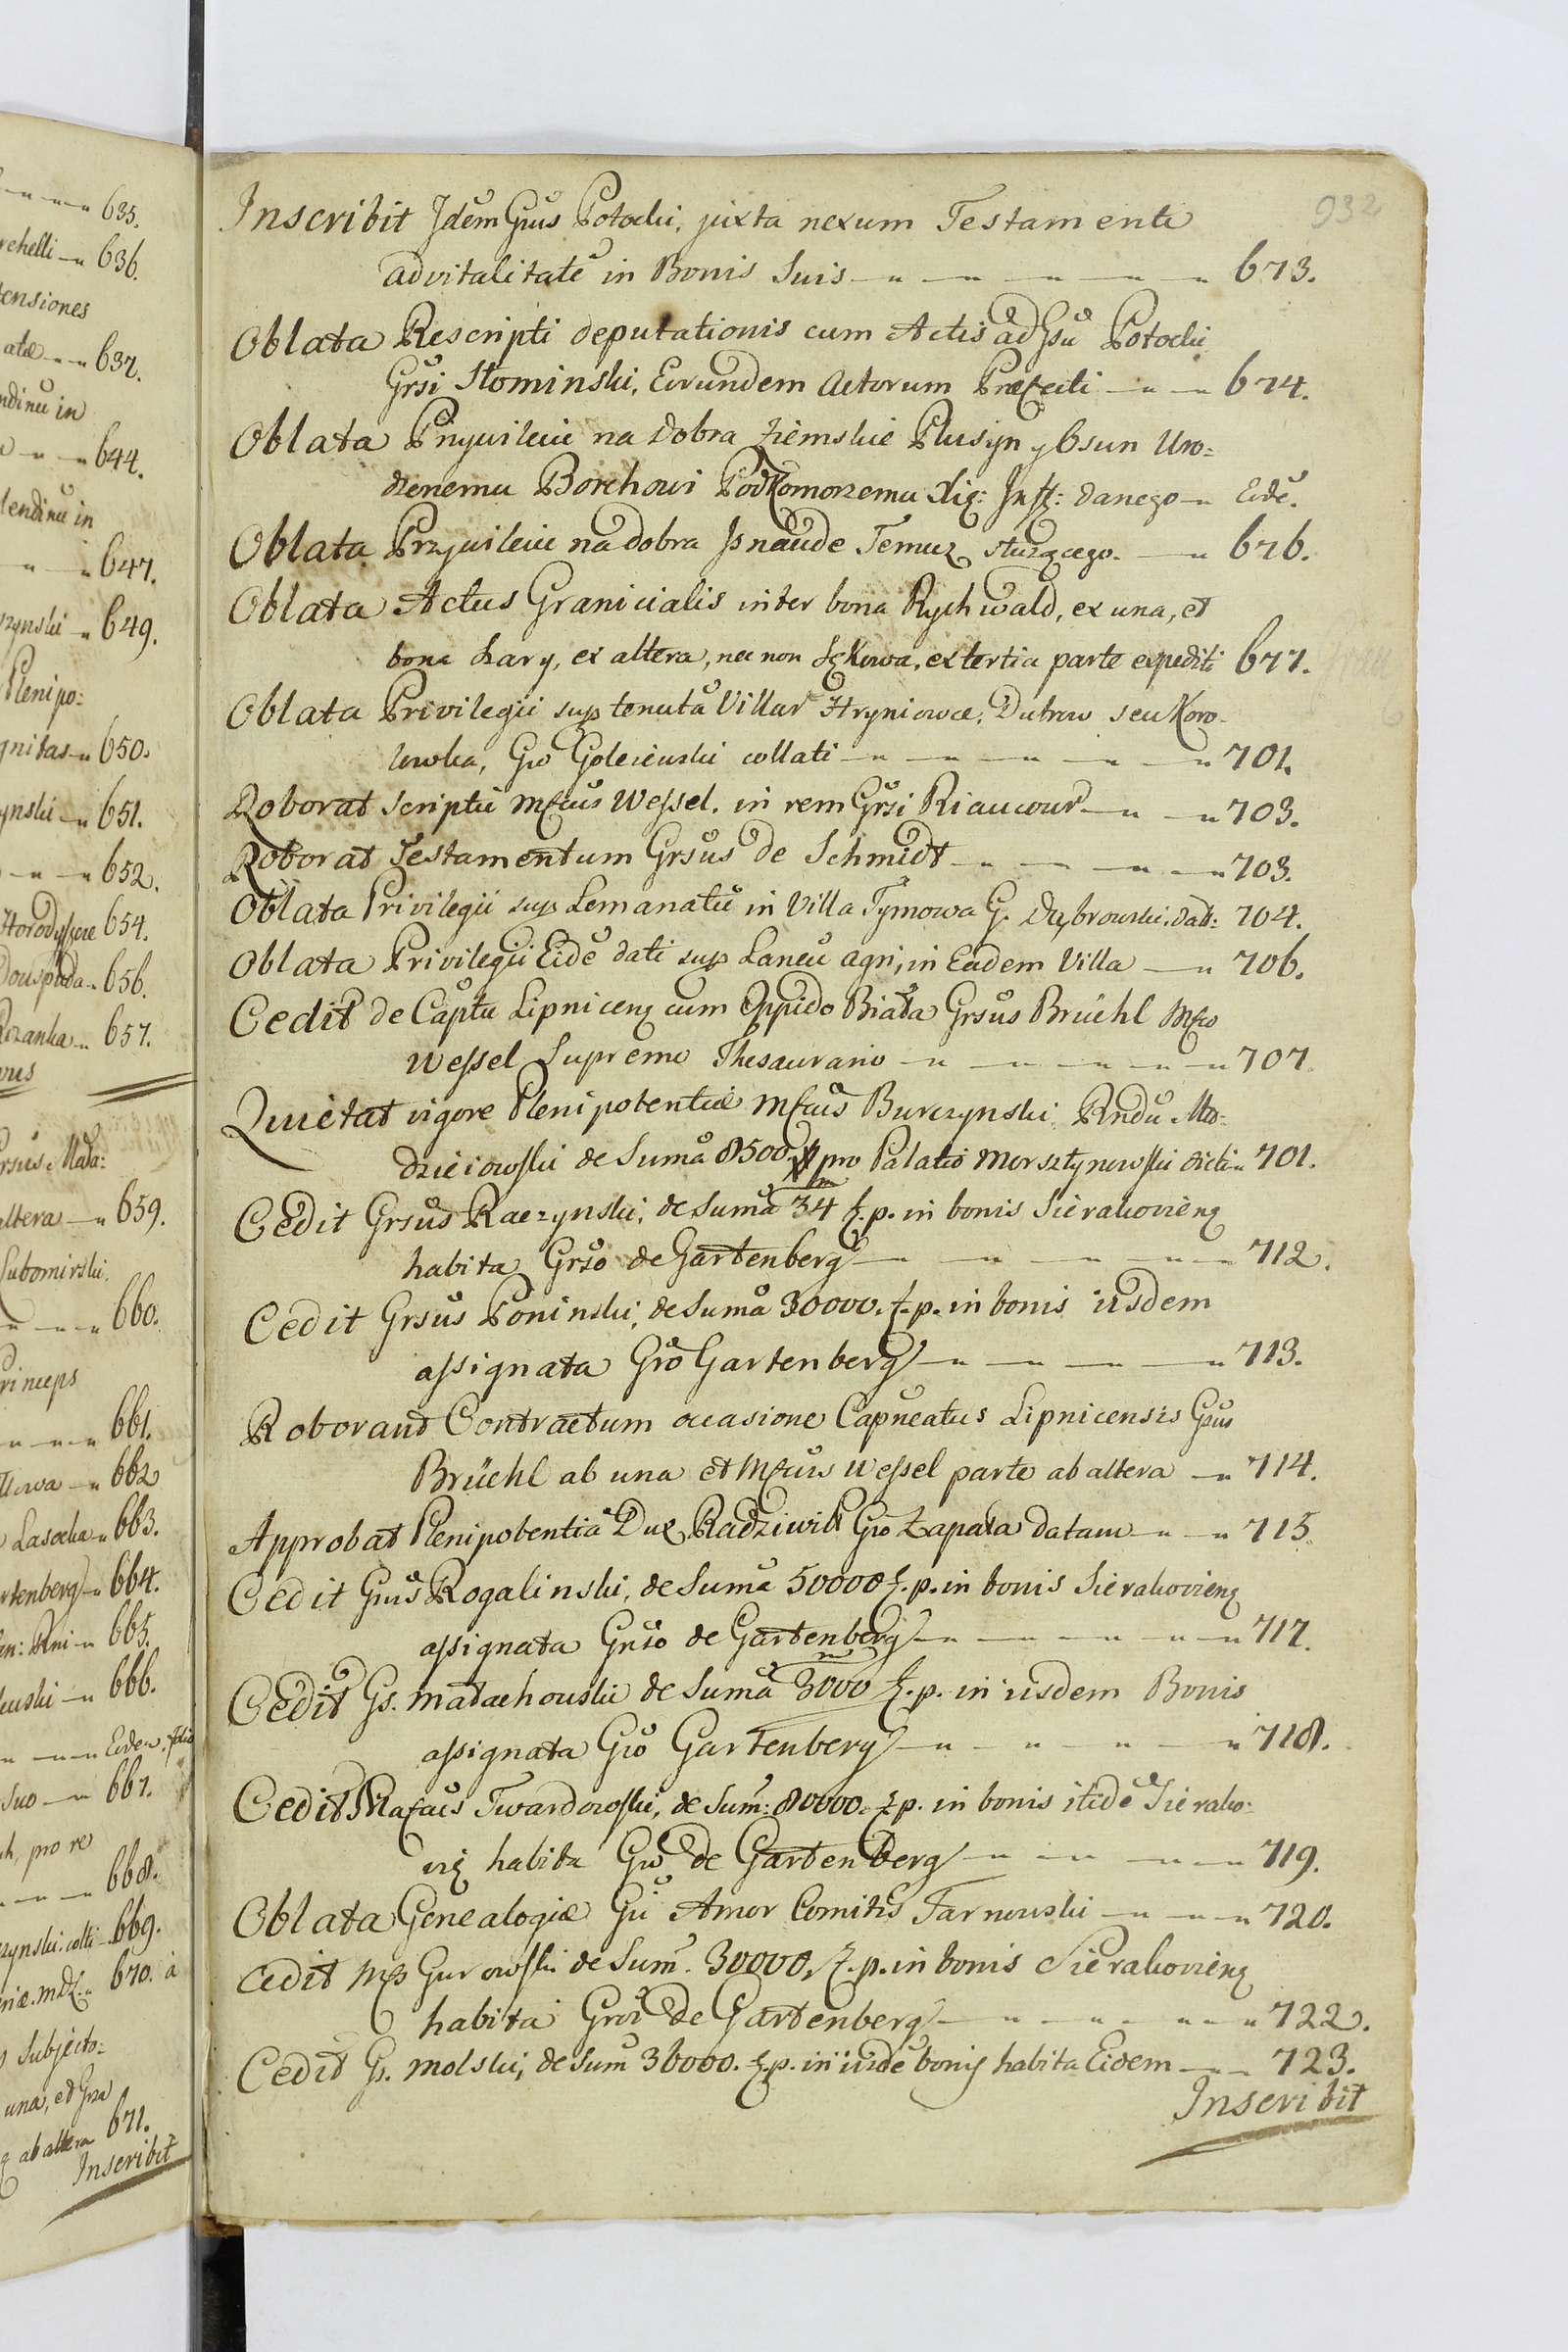 635.
rchelli 636.
tensiones
637.
ndinu in
644.
lendinu in
647.
rzynski 649.
Plenipo:
gnitas 650.
ynski 651.
652.
654.
Douspuda 656.
Rozanka 657.
Grsus Mała:
altera 659.
Lubomirski.
660.
Princeps
661.
662
Lasocka 663.
rtenberg 664.
665.
666.
Suo 667.
pro re
668.
669.
670. a
Subjecto:
una, et Gsa
ab altera 671.
Inscribit
932
Inscribit Idem Gsus Potocki, juxta nexum Testamenti
advitalitatē in Bonis Suis 673.
Oblata Rescripti deputationis cum Actis ad Gsū Potocki
Grsi Słominski, Eorundem Actorum Præfecti 674.
Oblata Przywileiu na Dobra ziemskie Plusyn y Osun Uro=
dzenemu Borchowi Podkomorzemu Xię: Infl: danego Eidē.
Oblata Przywileiu na dobra Isnaude Temuz słuzącego. 676.
Oblata Actus Granicialis inter bona Rychwald, ex una, et
bona Lary, ex altera, nec non Sękowa, ex tertia parte expediti 677.
Oblata Privilegii sup tenutā Villar Hryniowce, Dutrow seu Koro-
lowka, Gro Goleiewski collati 701.
Roborat scriptū Mfcus Wessel. in rem Grsi Riaucour 703.
Roborat Testamentum Grsus de Schmidt 703.
Oblata Privilegii sup Lemanatū in Villa Tymowa G. Dąbrowski. Dati: 704.
Oblata Privilegii Eidē dati sup Laneū agri, in Eadem Villa 706.
Cedit de Captu Lipnicenz cum Oppido Biała Grsus Brüehl Mfco
Wessel Supremo Thesaurario 707
Quietat vigore Plenipotentiæ Mfcus Burczynski Pndū Mło=
dzieiowski de Sumā 8500. # pro Palatio Morsztynowski dicti 701.
Cedit Grsus Raczynski, de Sumā 34 f. p. in bonis Sierakovienz
habita Grso de Gartenberg 712.
Cedit Grsus Poninski, de Sumā 30000. f. p. in bonis iisdem
assignata Gro Gartenberg 713.
Roborant Contractum occasione Capneatus Lipnicensis Gsus
Brüehl ab una et Mfcus Wessel parte ab altera 714.
Approbat Plenipotentiā Dux Radziwił Gro Łapata datam 715
Cedit Gsus Rogalinski, de Sumā 50000 f. p. in bonis Sierakovienz
assignata Grso de Gartenberg 717.
Cedit Gs. Małachowski de Sumā 3000 f. p. in iisdem Bonis
assignata Gro Gartenberg 718.
Cedit Mafcus Twardowski, de Sum: 80000. f. p. in bonis itidē Sierako=
viz habita Gro de Gartenberg 719.
Oblata Genealogiæ Gū Amor Comitis Tarnowski 720.
Cedit Mfs Gurowski de Sum. 30000, f. p. in bonis Sierakovienz
habita Grso de Gartenberg 722.
Cedit Gs. Molski, de Sum 36000. f. p. in iisdē bonis habita Eidem 723.
Inscribit